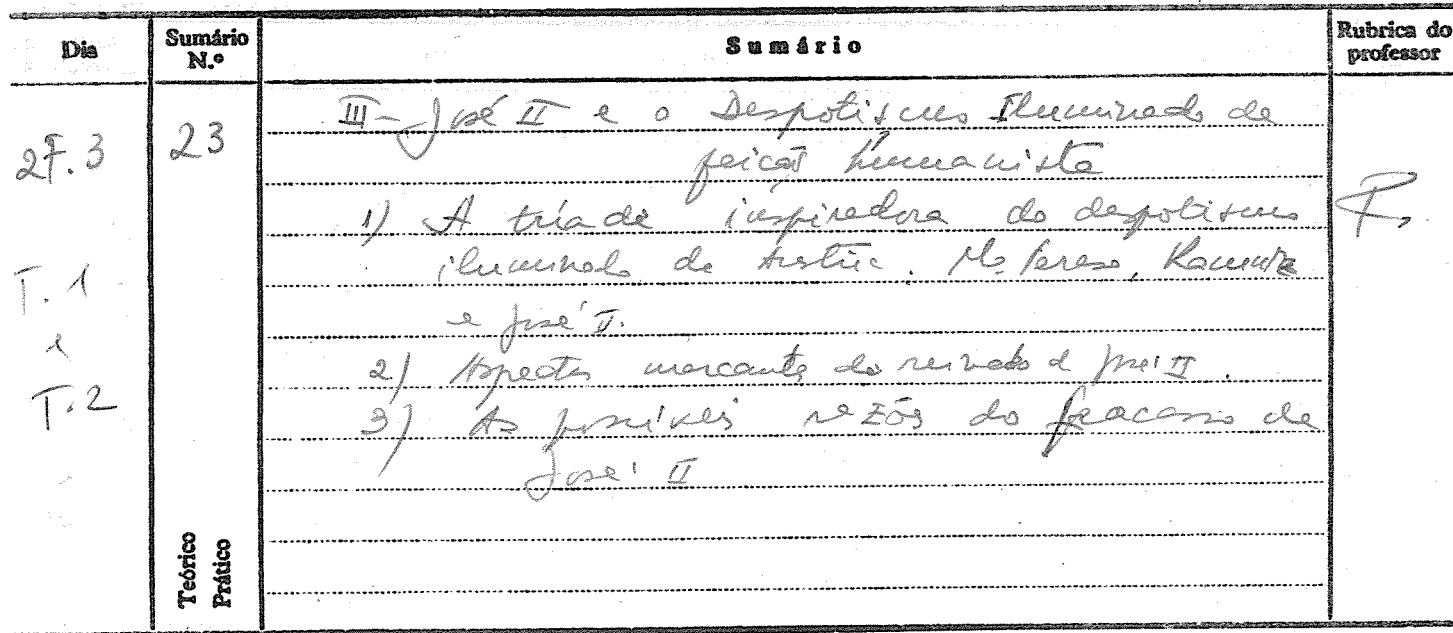 Dia
Sumário N.º
Sumário
Rubrica do professor
27.3
T.1
e
T.2
23
Teórico
Prático
III - José II e o Despotismo Iluminado de
feição humanista
1) A tríade inspiradora do despotismo
iluminado da Austria. Mª Teresa, Kaunitz
e José II.
2) Aspectos marcantes do reinado de José II.
3) As possíveis razões do fracasso de
José II